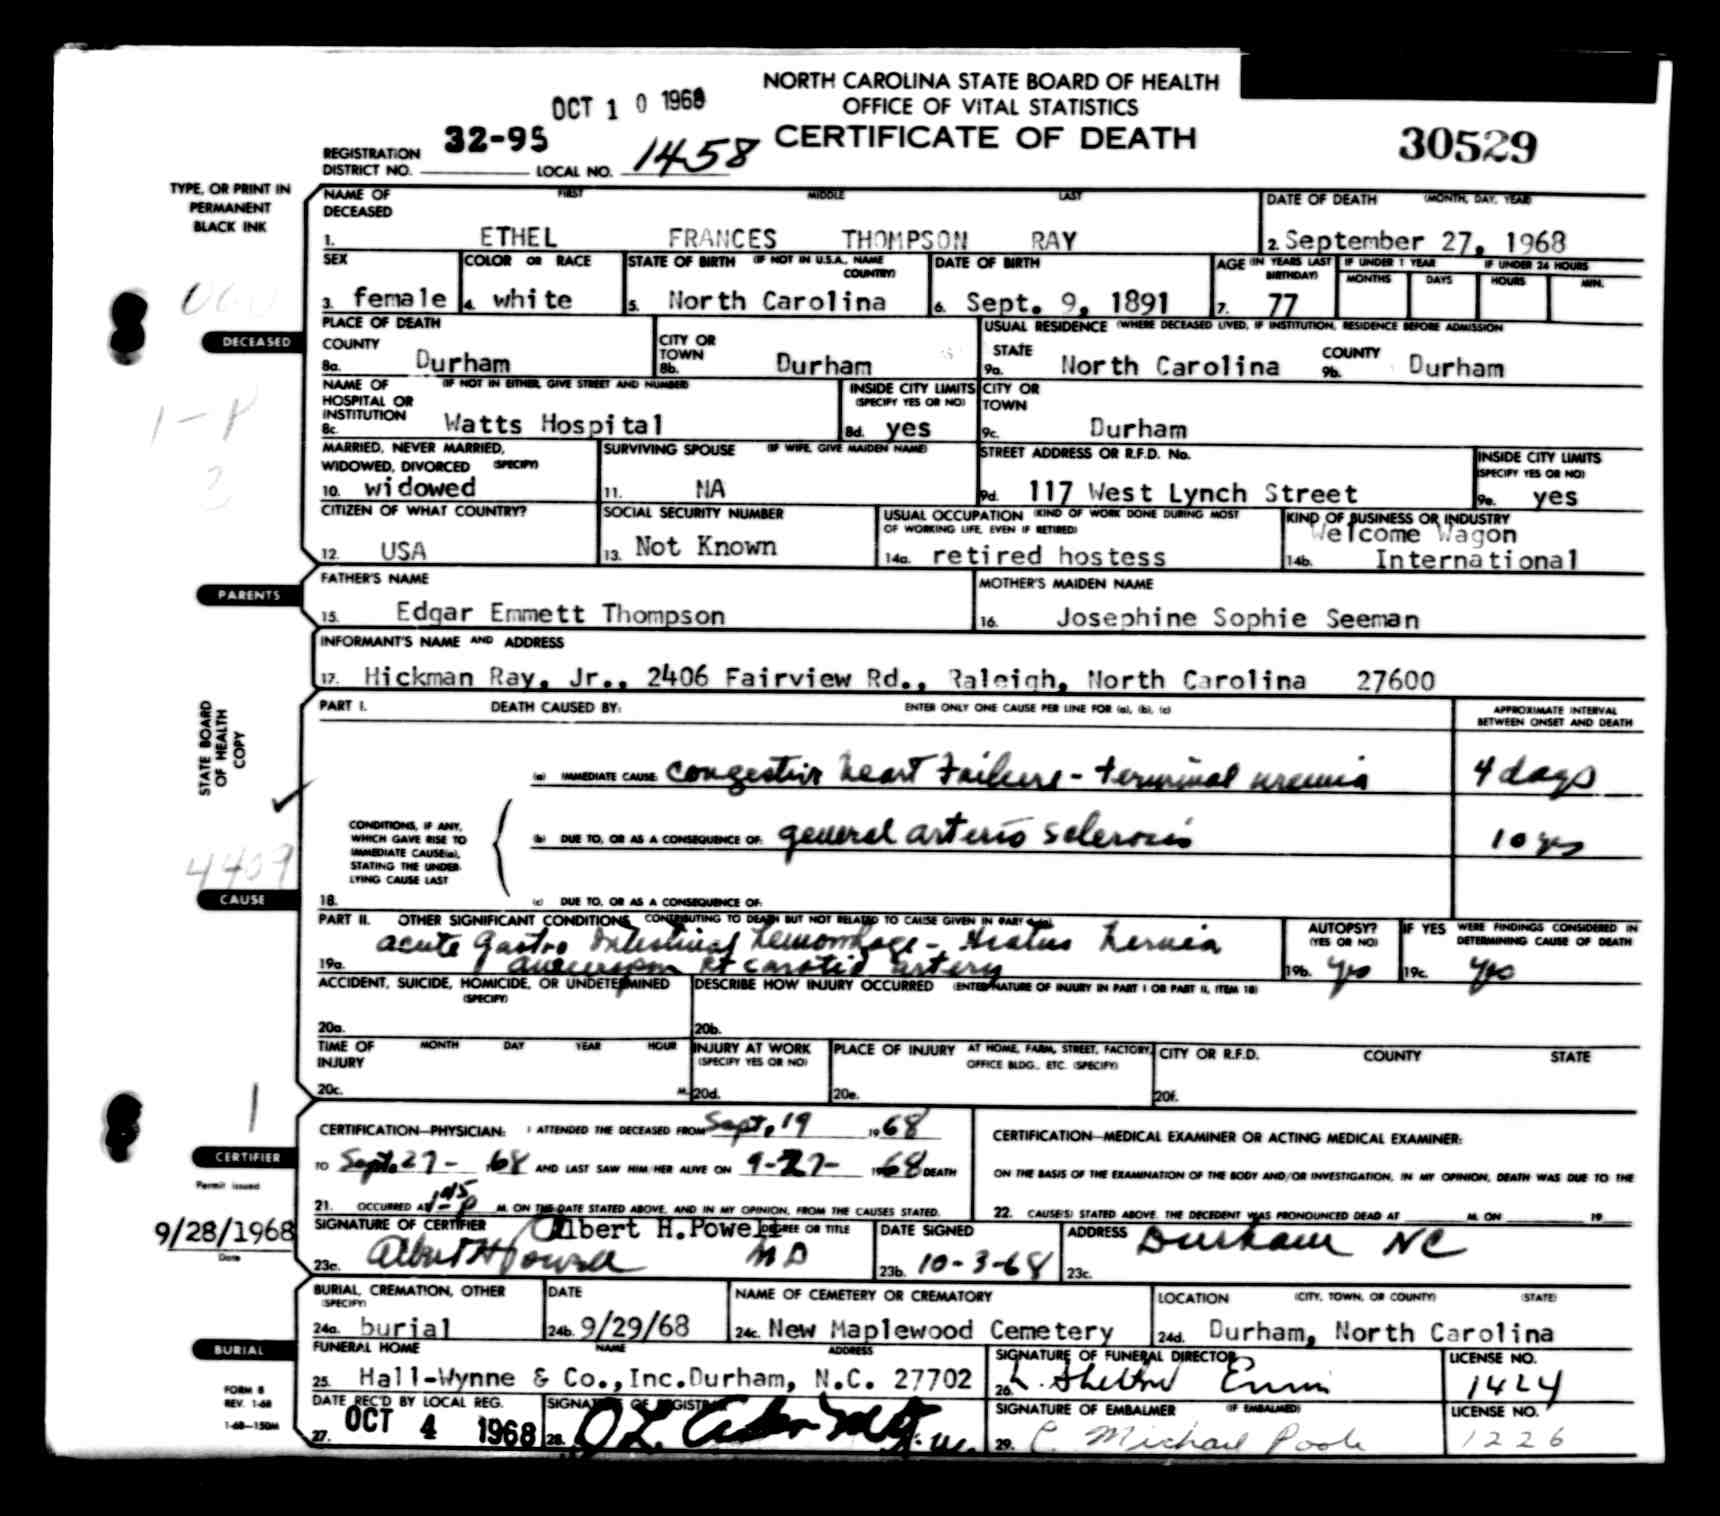 NORTH CAROLINA STATE BOARD OF HEALTH
OFFICE OF VITAL STATISTICS
CERTIFICATE OF DEATH
OCT 10 1968
30529
REGISTRATION DISTRICT NO. 32-95 LOCAL NO. 1458
TYPE, OR PRINT IN
PERMANENT
BLACK INK
NAME OF DECEASED FIRST MIDDLE LAST
1. ETHEL FRANCES THOMPSON RAY
DATE OF DEATH (MONTH, DAY, YEAR)
2. September 27, 1968
SEX
3. female
COLOR OR RACE
4. white
STATE OF BIRTH (IF NOT IN U.S.A., NAME COUNTRY)
5. North Carolina
DATE OF BIRTH
6. Sept. 9, 1891
AGE (IN YEARS LAST BIRTHDAY)
7. 77
IF UNDER 1 YEAR MONTHS DAYS
IF UNDER 24 HOURS HOURS MIN.
DECEASED
PLACE OF DEATH
COUNTY
8a. Durham
CITY OR TOWN
8b. Durham
USUAL RESIDENCE (WHERE DECEASED LIVED, IF INSTITUTION, RESIDENCE BEFORE ADMISSION
STATE
9a. North Carolina
COUNTY
9b. Durham
NAME OF HOSPITAL OR INSTITUTION (IF NOT IN EITHER, GIVE STREET AND NUMBER)
8c. Watts Hospital
INSIDE CITY LIMITS (SPECIFY YES OR NO)
8d. yes
CITY OR TOWN
9c. Durham
MARRIED, NEVER MARRIED, WIDOWED, DIVORCED (SPECIFY)
10. widowed
SURVIVING SPOUSE (IF WIFE, GIVE MAIDEN NAME)
11. NA
STREET ADDRESS OR R.F.D. No.
9d. 117 West Lynch Street
INSIDE CITY LIMITS (SPECIFY YES OR NO)
9e. yes
CITIZEN OF WHAT COUNTRY?
12. USA
SOCIAL SECURITY NUMBER
13. Not Known
USUAL OCCUPATION (KIND OF WORK DONE DURING MOST OF WORKING LIFE, EVEN IF RETIRED)
14a. retired hostess
KIND OF BUSINESS OR INDUSTRY
14b. Welcome Wagon International
PARENTS
FATHER'S NAME
15. Edgar Emmett Thompson
MOTHER'S MAIDEN NAME
16. Josephine Sophie Seeman
INFORMANT'S NAME AND ADDRESS
17. Hickman Ray, Jr., 2406 Fairview Rd., Raleigh, North Carolina 27600
STATE BOARD
OF HEALTH
COPY
PART I. DEATH CAUSED BY: ENTER ONLY ONE CAUSE PER LINE FOR (a), (b), (c)
APPROXIMATE INTERVAL BETWEEN ONSET AND DEATH
(a) IMMEDIATE CAUSE: Congestive heart Failure - terminal uremia 4 days
CONDITIONS, IF ANY, WHICH GAVE RISE TO IMMEDIATE CAUSE(a), STATING THE UNDERLYING CAUSE LAST
(b) DUE TO, OR AS A CONSEQUENCE OF: general arterio sclerosis 10 yrs
4409
CAUSE
18. (c) DUE TO, OR AS A CONSEQUENCE OF:
PART II. OTHER SIGNIFICANT CONDITIONS, CONTRIBUTING TO DEATH BUT NOT RELATED TO CAUSE GIVEN IN PART I (a).
19a. acute Gastro Intestinal hemorrhage - Hiatus hernia
aneurysm rt carotid artery
AUTOPSY? (YES OR NO)
19b. yes
IF YES WERE FINDINGS CONSIDERED IN DETERMINING CAUSE OF DEATH
19c. yes
ACCIDENT, SUICIDE, HOMICIDE, OR UNDETERMINED (SPECIFY)
20a.
DESCRIBE HOW INJURY OCCURRED (ENTER NATURE OF INJURY IN PART I OR PART II, ITEM 18)
20b.
TIME OF INJURY MONTH DAY YEAR HOUR
20c. M.
INJURY AT WORK (SPECIFY YES OR NO)
20d.
PLACE OF INJURY AT HOME, FARM, STREET, FACTORY, OFFICE BLDG., ETC. (SPECIFY)
20e.
CITY OR R.F.D. COUNTY STATE
20f.
CERTIFIER
CERTIFICATION—PHYSICIAN: I ATTENDED THE DECEASED FROM Sept. 19 1968
TO Sept. 27 - 68 AND LAST SAW HIM/HER ALIVE ON 9-27- 1968 DEATH
21. OCCURRED AT 1:45 P M. ON THE DATE STATED ABOVE, AND IN MY OPINION, FROM THE CAUSES STATED.
CERTIFICATION—MEDICAL EXAMINER OR ACTING MEDICAL EXAMINER:
ON THE BASIS OF THE EXAMINATION OF THE BODY AND/OR INVESTIGATION, IN MY OPINION, DEATH WAS DUE TO THE
22. CAUSE(S) STATED ABOVE. THE DECEDENT WAS PRONOUNCED DEAD AT M. ON 19
Permit issued
9/28/1968
Date
SIGNATURE OF CERTIFIER Albert H. Powell DEGREE OR TITLE
23a. Albert H Powell MD
DATE SIGNED
23b. 10-3-68
ADDRESS
23c. Durham NC
BURIAL
BURIAL, CREMATION, OTHER (SPECIFY)
24a. burial
DATE
24b. 9/29/68
NAME OF CEMETERY OR CREMATORY
24c. New Maplewood Cemetery
LOCATION (CITY, TOWN, OR COUNTY) (STATE)
24d. Durham, North Carolina
FUNERAL HOME NAME ADDRESS
25. Hall-Wynne & Co.,Inc.Durham, N.C. 27702
SIGNATURE OF FUNERAL DIRECTOR
26. L. Shelton Ervin
LICENSE NO.
1424
FORM 8
REV. 1-68
1-68—150M
DATE REC'D BY LOCAL REG.
27. OCT 4 1968
SIGNATURE OF REGISTRAR
28.
SIGNATURE OF EMBALMER (IF EMBALMED)
29. C. Michael Poole
LICENSE NO.
1226